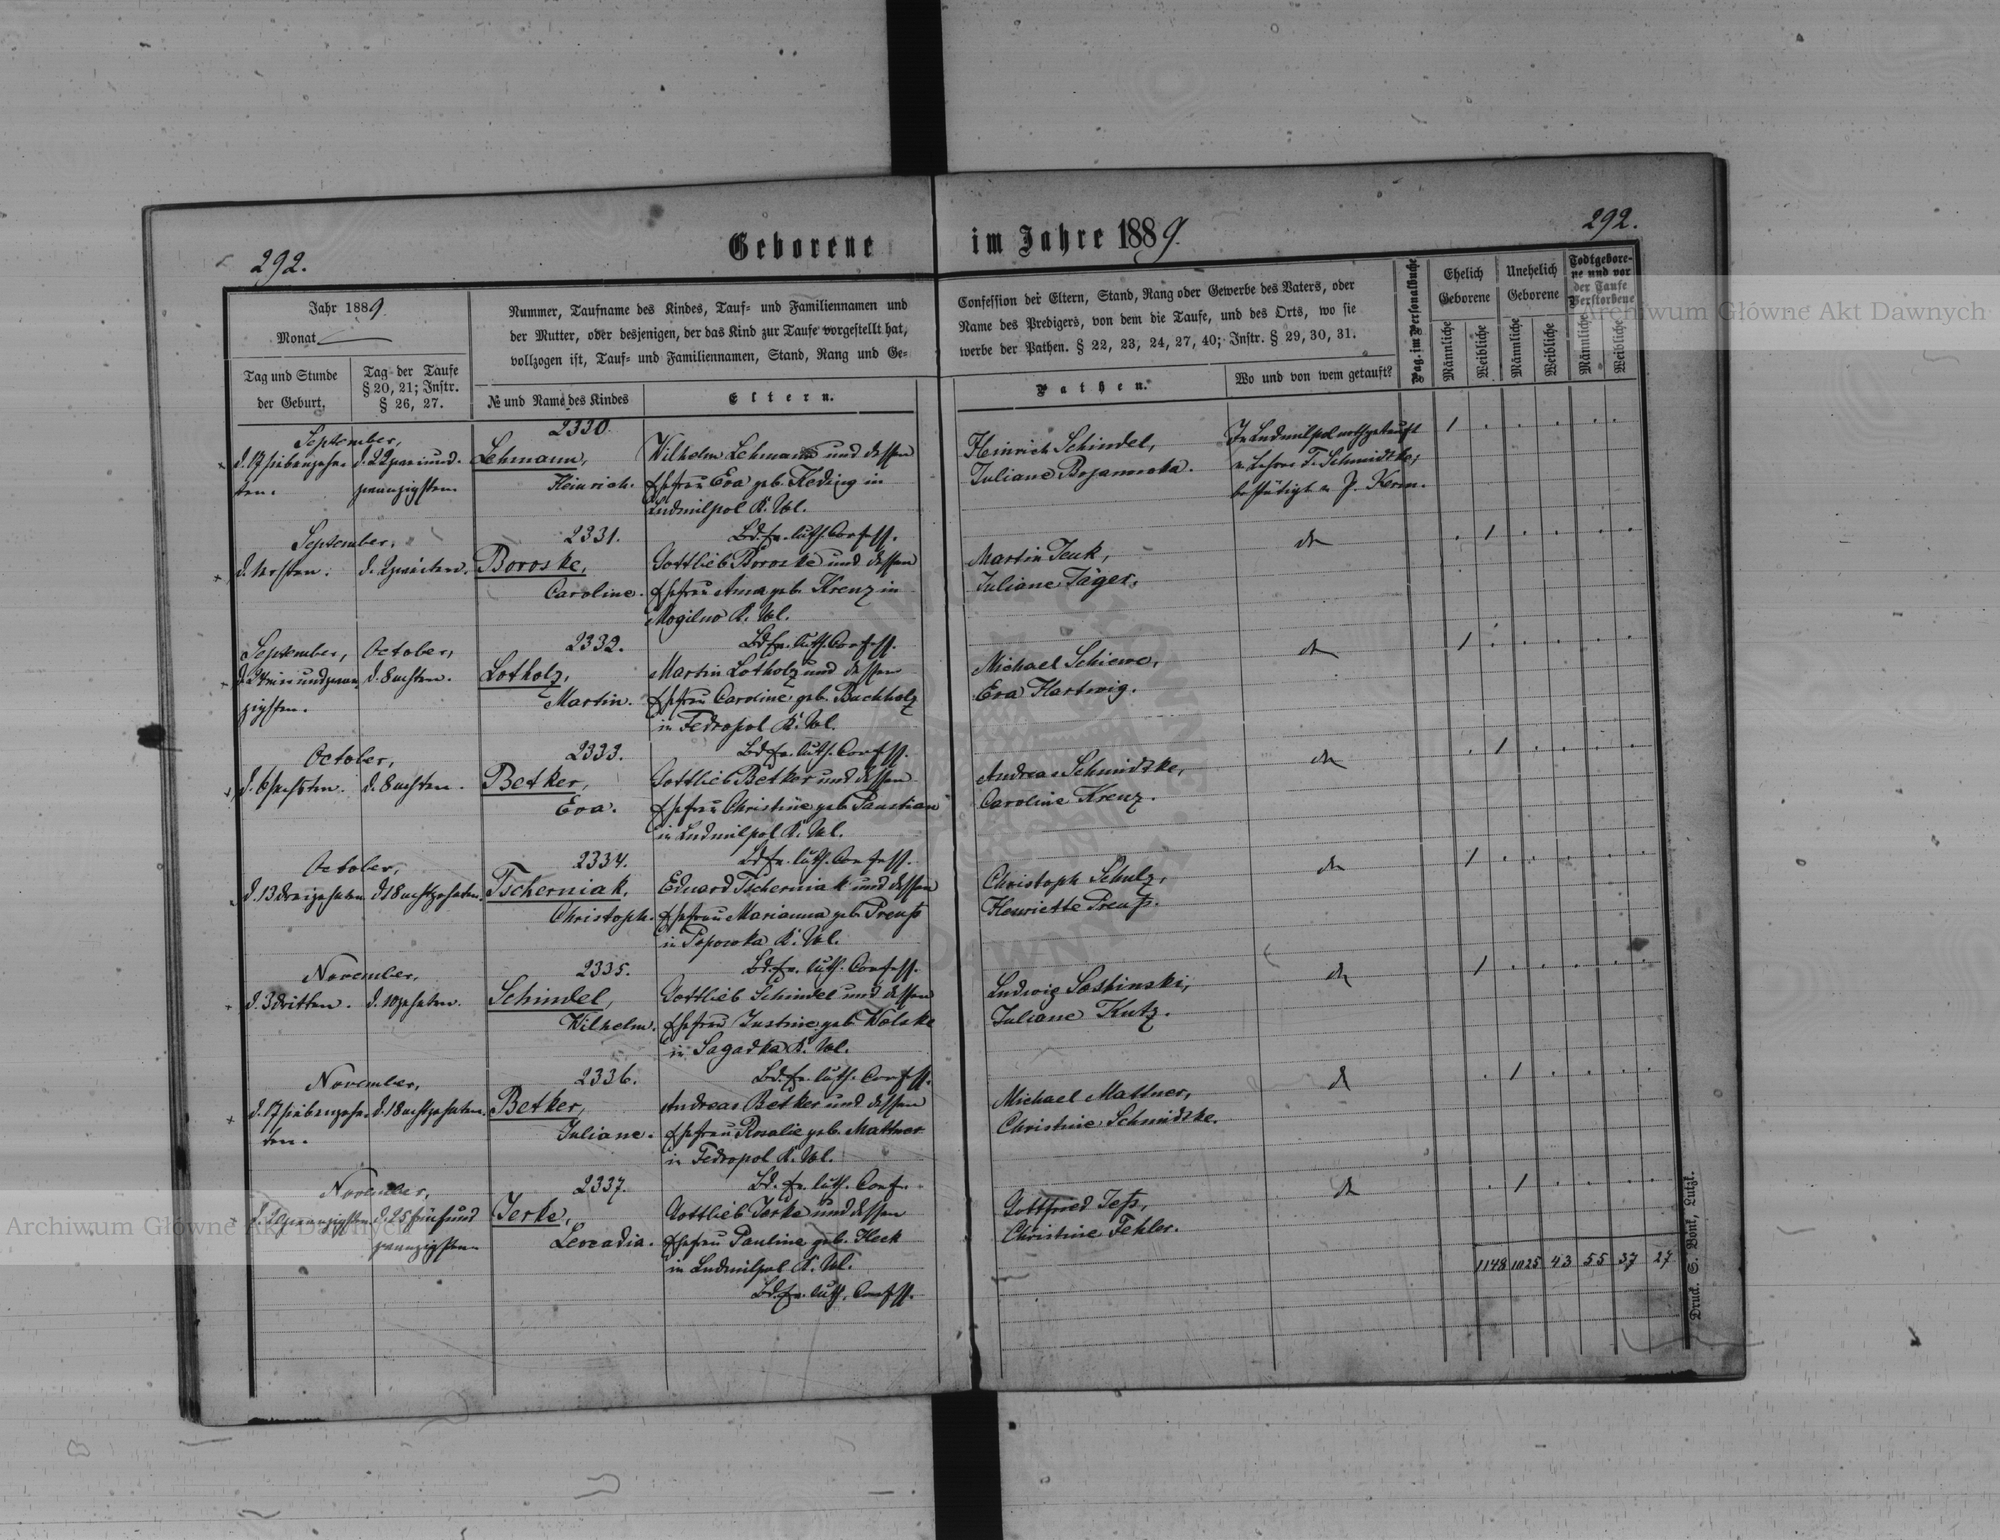 292.
Geborene im Jahre 1889.
292.
Jahr 1889.
Monat
Tag und Stunde
der Geburt.
Tag der Taufe
§ 20, 21; Instr.
§ 26, 27.
Nummer, Taufname des Kindes, Tauf- und Familiennamen und
der Mutter, oder desjenigen, der das Kind zur Taufe vorgestellt hat,
vollzogen ist, Tauf- und Familiennamen, Stand, Rang und Ge-
№ und Name des Kindes
Eltern.
Confession der Eltern, Stand, Rang oder Gewerbe des Vaters, oder
Name des Predigers, von dem die Taufe, und des Orts, wo sie
werbe der Pathen. § 22, 23, 24, 27, 40; Instr. § 29, 30, 31.
Pathen.
Wo und von wem getauft?
Pag. im Personalbuche
Ehelich
Geborene
Unehelich
Geborene
Todtgebore-
ne und vor
der Taufe
Verstorbene
Männliche
Weibliche
Männliche
Weibliche
Männliche
Weibliche
September,
d. 17 siebenzehn-
ten.
d. 22 zweiund-
zwanzigsten.
2330.
Lehmann,
Heinrich.
Wilhelm Lehmann und dessen
Ehefrau Eva geb. Keding in
Ludmilpol K. Wl.
Bd. ev. luth. Confess.
Heinrich Schindel,
Juliane Bojanowska.
In Ludmilpol nothgetauft
v. Lehrer F. Schmidtke,
bestätigt v. P. Kerm.
1 . . . . .
September,
d. 1 ersten.
d. 2 zweiten.
2331.
Boroske,
Caroline.
Gottlieb Boroske und dessen
Ehefrau Anna geb. Krenz in
Mogilno K. Wl.
Bd. ev. luth. Confess.
Martin Jeuk,
Juliane Jäger.
do
. 1 . . . .
September,
d. 23 drei und zwan-
zigsten.
October,
d. 8 achten.
2332.
Lotholz,
Martin.
Martin Lotholz und dessen
Ehefrau Caroline geb. Buchholz
in Fedropol K. Wl.
Bd. ev. luth. Confess.
Michael Schiewe,
Eva Hartwig.
do
1 . . . . .
October,
d. 6 sechsten.
d. 8 achten.
2333.
Betker,
Eva.
Gottlieb Betker und dessen
Ehefrau Christine geb. Paustian
in Ludmilpol K. Wl.
Bd. ev. luth. Confess.
Andreas Schmidtke,
Caroline Krenz.
do
. 1 . . . .
October,
d. 13 dreizehnten
d. 18 achtzehnten.
2334.
Tscherniak,
Christoph.
Eduard Tscherniak und dessen
Ehefrau Marianna geb. Preuß
in Popowka K. Wl.
Bd. ev. luth. Confess.
Christoph Schulz,
Henriette Preuß.
do
1 . . . . .
November,
d. 3 dritten.
d. 10 zehnten.
2335.
Schindel,
Wilhelm.
Gottlieb Schindel und dessen
Ehefrau Justine geb. Wolske
in Sagadka K. Wl.
Bd. ev. luth. Confess.
Ludwig Soshinski,
Juliane Kutz.
do
1 . . . . .
November,
d. 17 siebenzehn-
ten.
d. 18 achtzehnten.
2336.
Betker,
Juliane.
Andreas Betker und dessen
Ehefrau Rosalie geb. Mattner
in Fedropol K. Wl.
Bd. ev. luth. Conf.
Michael Mattner,
Christine Schmidtke.
do
. 1 . . . .
November,
d. 20 zwanzigsten
d. 25 fünfund
zwanzigsten
2337.
Jerke,
Leocadia.
Gottlieb Jerke und dessen
Ehefrau Pauline geb. Heck
in Ludmilpol K. Wl.
Bd. ev. luth. Confess.
Gottfried Jeß,
Christine Fehler.
do
. 1 . . . .
1148 1025 43 55 37 27
Druck. S. Bonk, Lutzk.
Archiwum Główne Akt Dawnych
Archiwum Główne Akt Dawnych